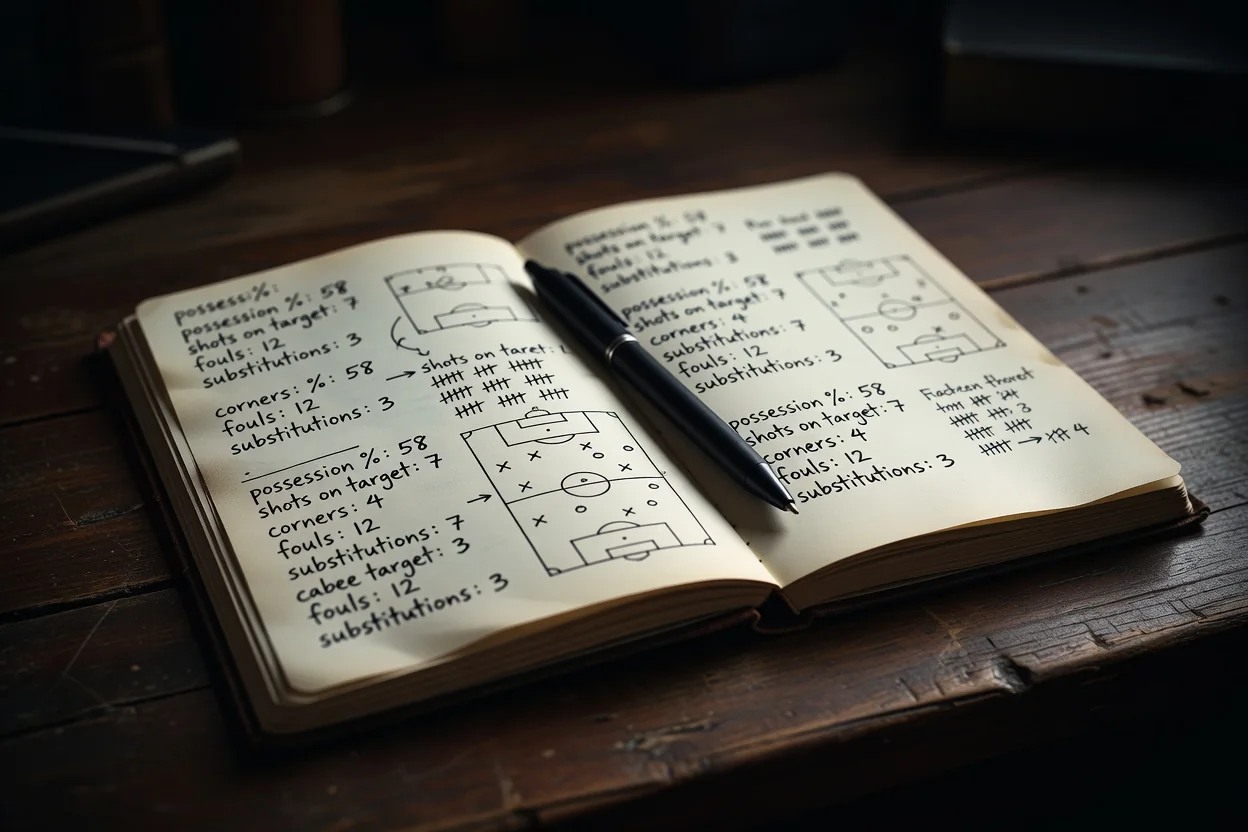 possessi:%:
possession %: 58
shots on target: 7
fouls: 12
substitutions: 3
corners: %: 58
fouls: 12
substitutions: 3
possession %: 58
shots on target: 7
corners: 4
fouls: 12
substitutions: 7
cabee target: 3
fouls: 12
substitutions: 3
shots on taret:
possession %: 58
shots on target 7
fouls: 12
substitutions: 3
possession %: 58
shots on target: 7
corners: 4
substitutions: 7
fouls: 12
substitutions: 3
possession %: 58
shots on target: 7
corners: 4
fouls: 12
substitutions: 3
3
4